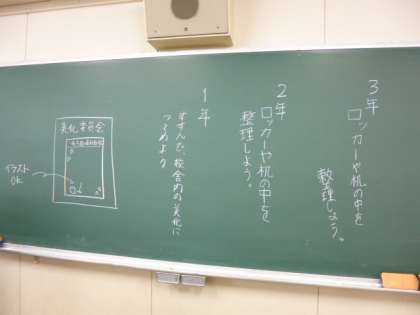 3年
ロッカーや机の中を
整理しよう。
2年
ロッカーや机の中を
整理しよう。
1年
すすんで、校舎内の美化に
つとめよう
美化委員会
イラスト
OK